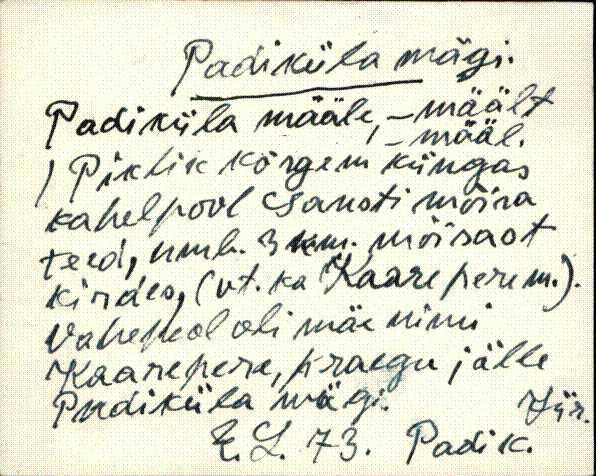 Padiküla mägi.
Padiküla määle, – mäält
– määl.
) Piklik kõrgem küngas
kahelpool Sausti mõisa
teed, umb. 3 km. mõisast
kirdes, (vt. ka Kaarepere m.).
Vahepeal oli mäe nimi
Kaarepere, praegu jälle
Padiküla mägi.
Jür.
E. L. 73. Padik.